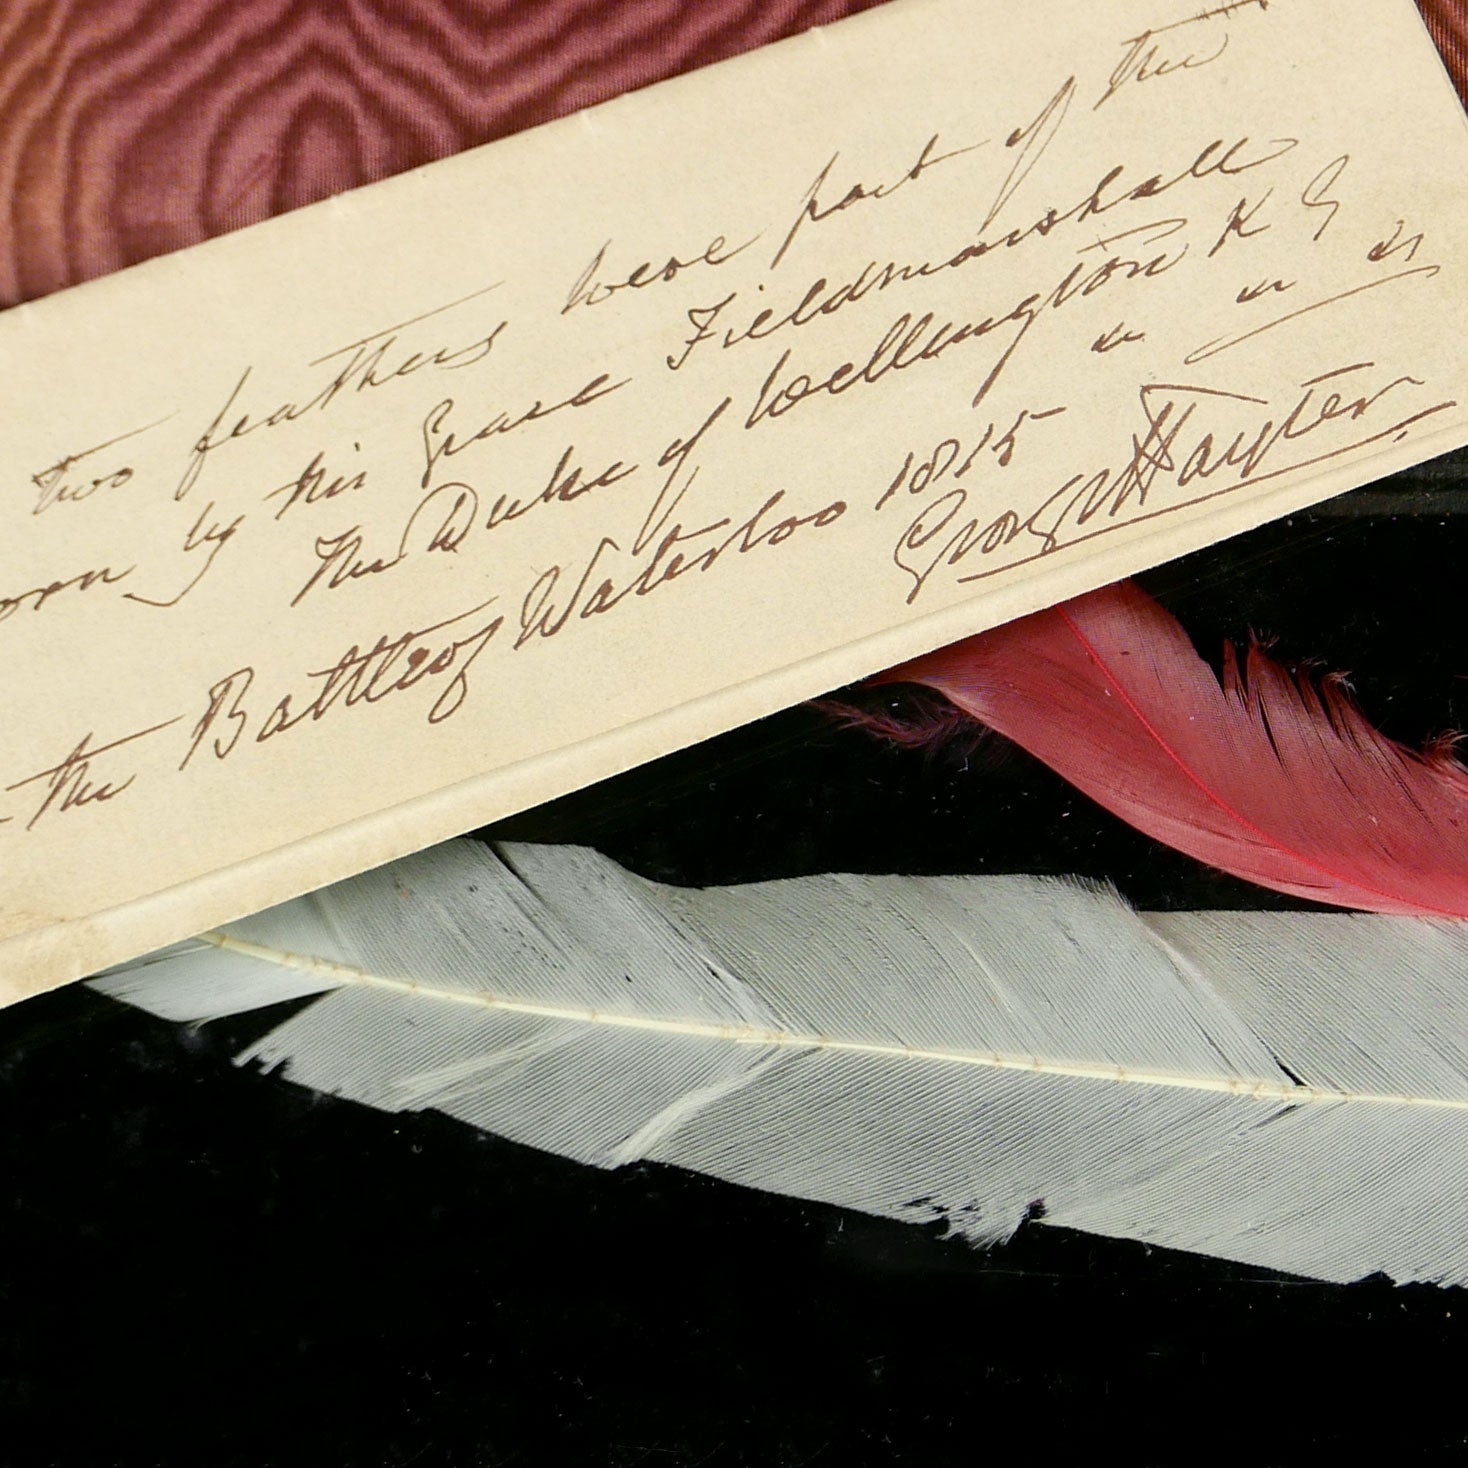 two feathers were part of the
orn by his Grace Fieldmarshall
the Duke of Wellington K G
the Battle of Waterloo 1815
George Hayter